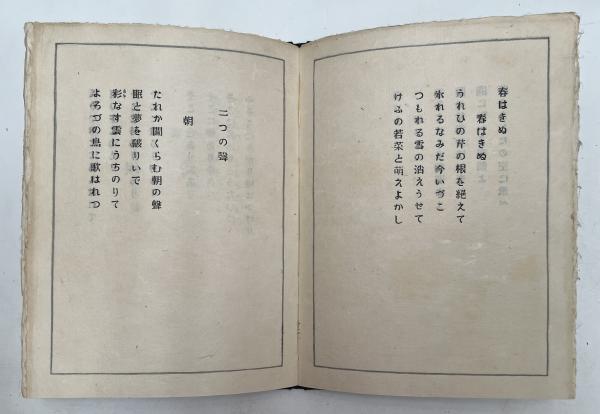 春はきぬ
春はきぬ
うれひの芹の根を絶えて
氷れるなみだ今いづこ
つもれる雪の消えうせて
けふの若菜と萌えよかし
二つの聲
朝
たれか聞くらむ朝の聲
眠と夢を破りいで
彩なす雲にうちのりて
よろづの鳥に歌はれつ